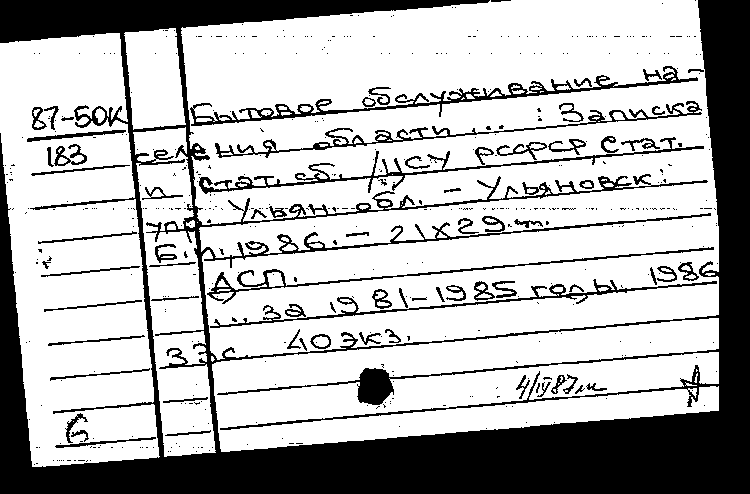 87-50К
183
Бытовое обслуживание на-
селения области ... : Записка
и стат. сб. /ЦСУ РСФСР, Стат.
упр. Ульян. обл. - Ульяновск:
Б.и., 1986. - 21х29 см.
ДСП.
... за 1981-1985 годы. 1986
33с. 40 экз.
4/IV87
6